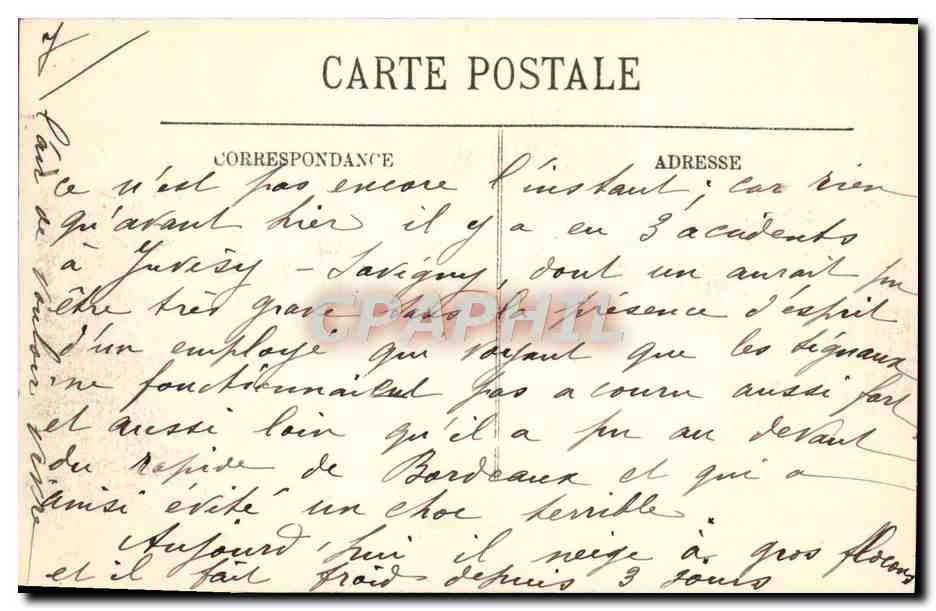 CARTE POSTALE
CORRESPONDANCE
ADRESSE
ce n'est pas encore l'instant, car rien
qu'avant hier il y a eu 3 accidents
à Juvisy - Savigny, dont un aurait pu
être très grave sans la présence d'esprit
d'un employé qui voyant que les signaux
ne fonctionnaient pas a couru aussi fort
et aussi loin qu'il a pu au devant
du rapide de Bordeaux et qui a
ainsi évité un choc terrible.
Aujourd'hui il neige à gros flocons
et il fait froid depuis 3 jours
l'air de vouloir
CPAPHIL